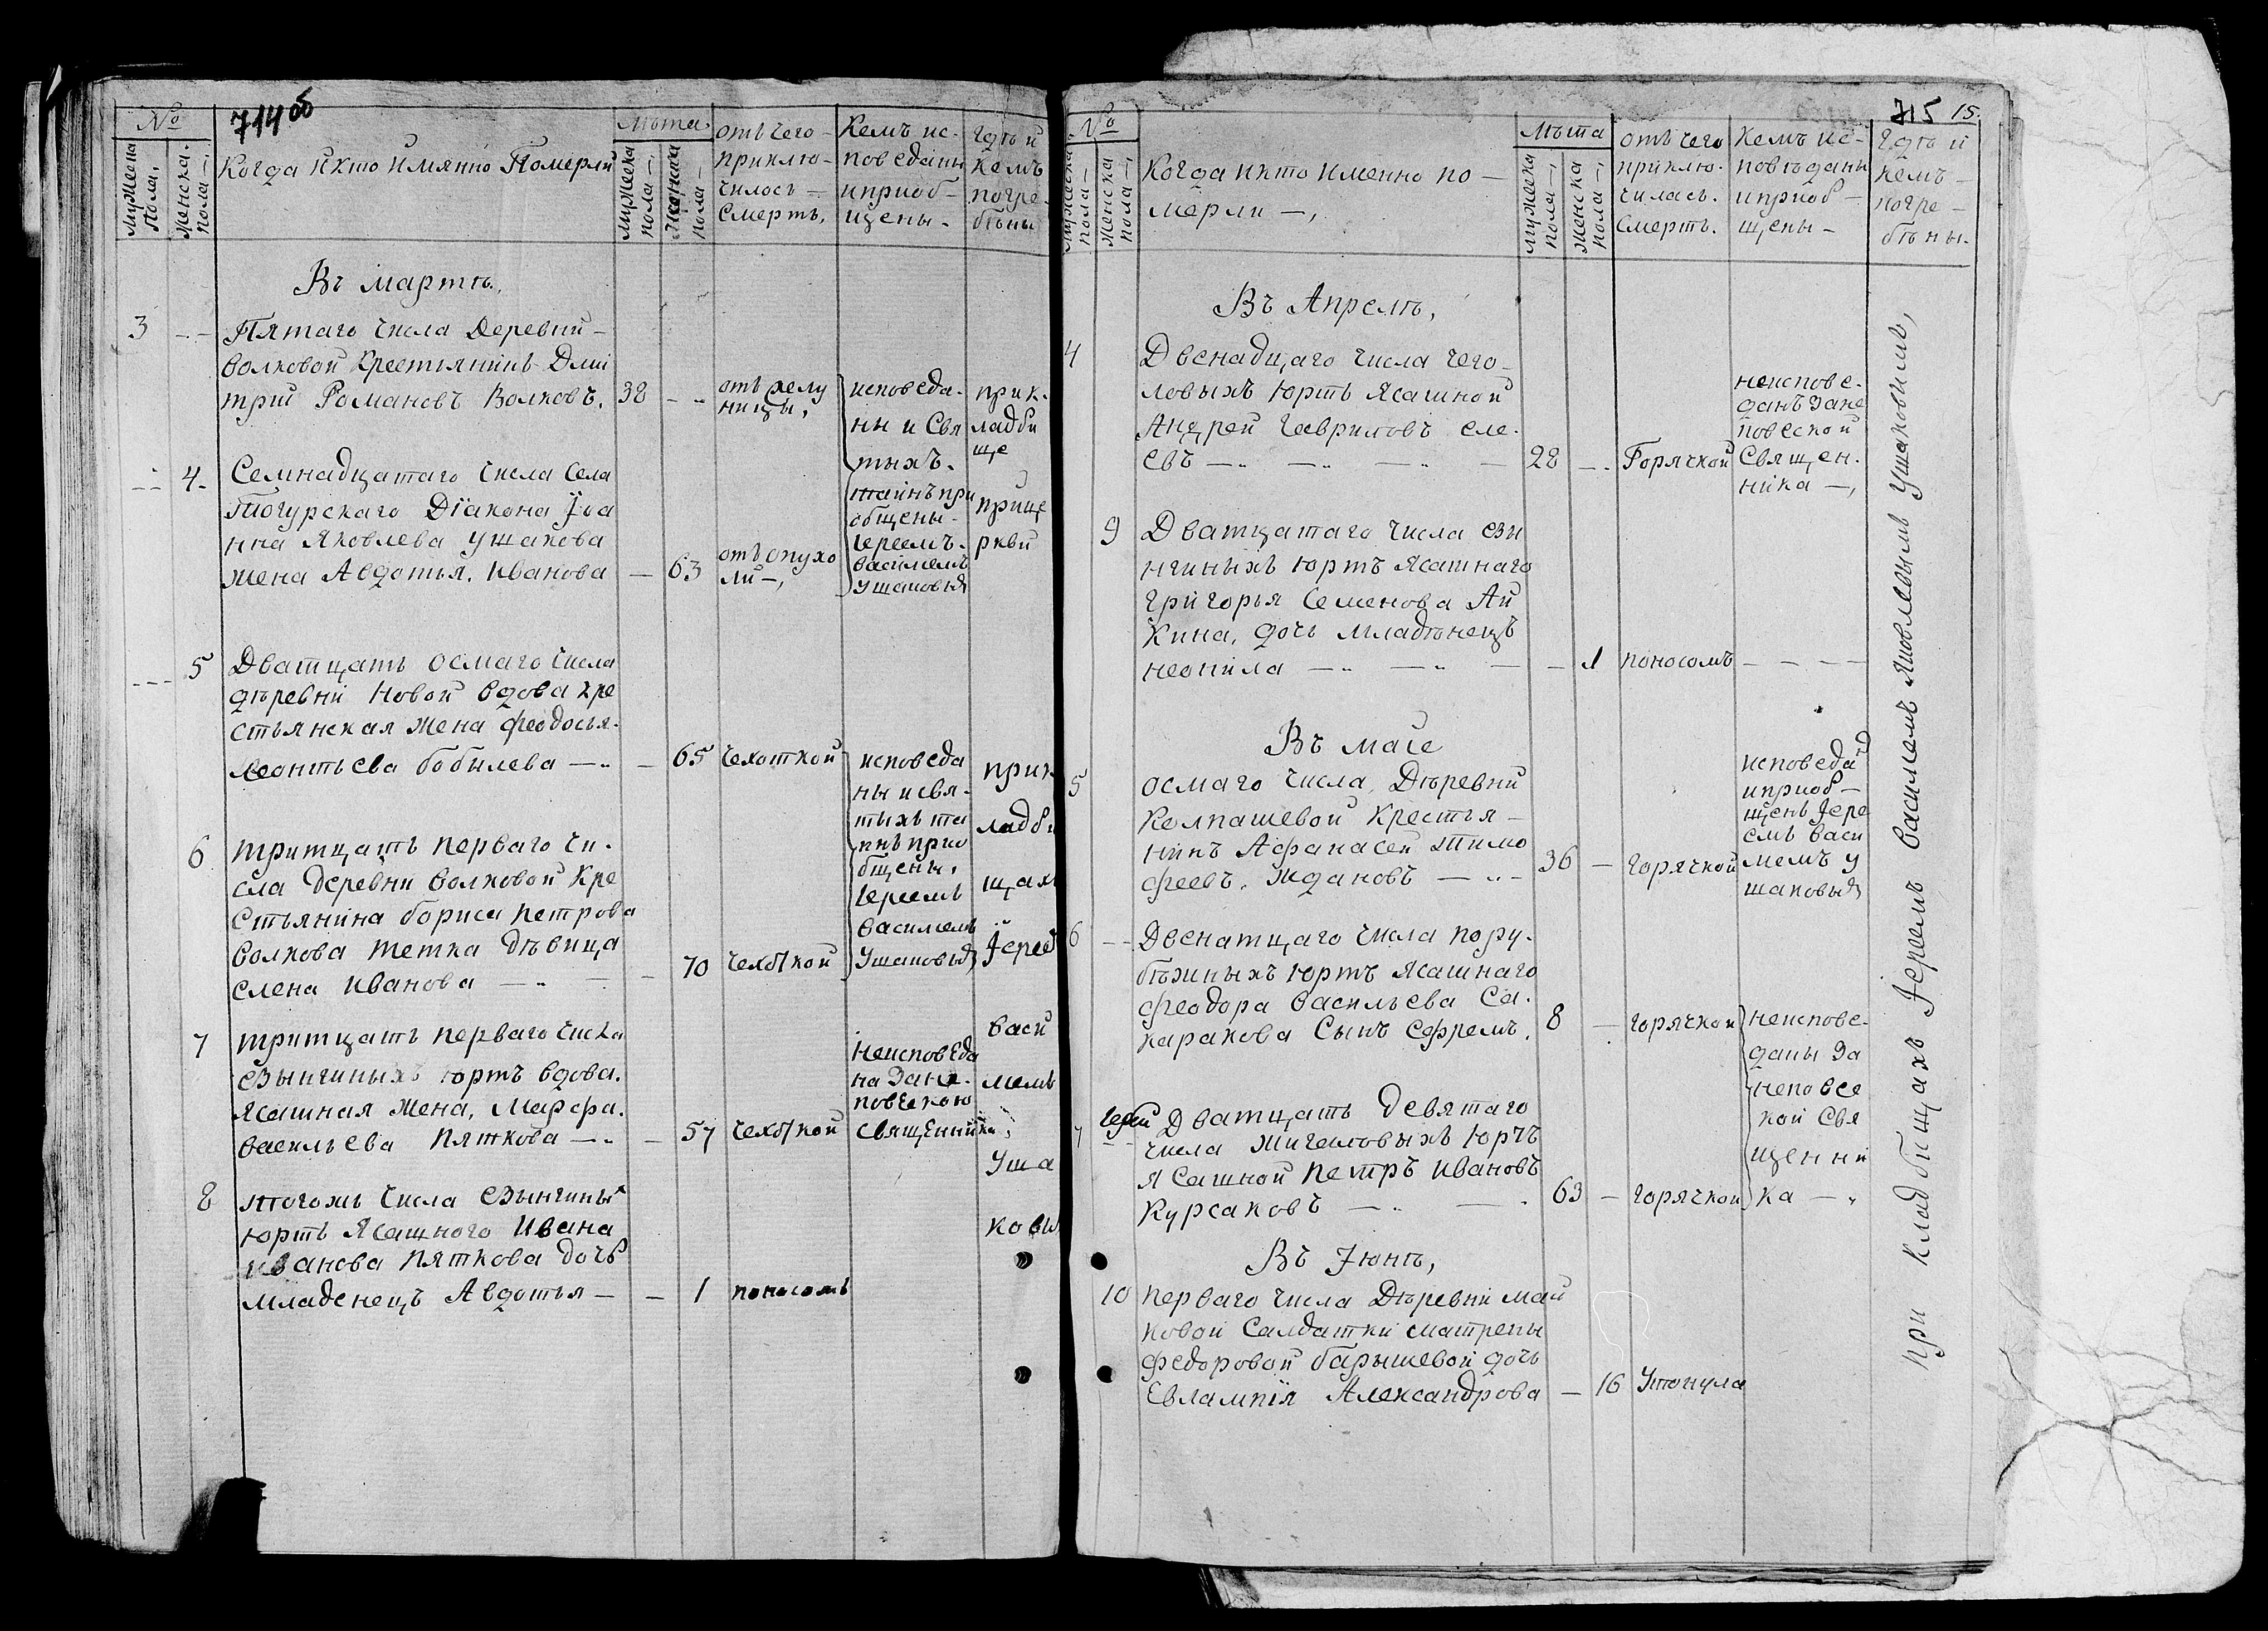 714 об
№
Мужеска пола,
Женска пола
Когда и кто имянно Померли
Лѣта.
Мужеска пола
Женска пола
отъ чего
приклю-
чилось
смерть,
Кемъ ис-
поведаны
и приоб-
щены-
Гдѣ и
Кемъ
погре-
бѣны
Въ мартѣ.
3 Пятаго числа Деревни
волковой крестьянинъ Дми
трий Романовъ Волковъ. 38
отъ желу
ницы,
исповеда-
ны и Свя
тыхъ-
тайнъ при
общены-
Иереемъ-
василемъ
Ушаковым
при к-
ладби
ще
4. Семнадцатаго числа села
Тогурскаго Діакона Јоа
нна Яковлева ушакова
жена Авдотья. Иванова — 63
отъ опухо
ли —,
при це
ркви
5 Дватцать осмаго числа
дѣревни новой вдова кре
стьянская жена феодосья-
леонтьева бобилева — 65 чехоткой
исповеда
ны и свя-
тыхъ та
инъ прио
бщены,
Иереемъ
василемъ
Ушаковым
при к
ладби
щахъ
Јерее
Васи
лемъ
Уша
ковы
6 тритцать перваго чи-
сла деревни волковой кре
стьянина бориса петрова
волкова тетка дѣвица
елена иванова — 70 чехоткой
7 тритцать перваго числа
езынгиныхъ юртъ вдова.
ясашная жена, Марфа.
васильева пяткова — 57 чехоткой
неисповеда
на за не-
повескою
священника,
8 тогожъ числа езынгины
юртъ ясашного ивана
иванова пяткова дочь
младенецъ Авдотья — 1 поносомъ
715 15.
№
мужеска пола
женска пола
Когда и кто именно по-
мерли —,
Лѣта
мужеска пола
женска пола
отъ чего
приклю-
чилась.
смерть.
Кемъ ис-
повѣданы
и приоб-
щены-
Гдѣ и
кемъ-
погре-
бѣны.
Въ Апрелѣ,
4 Двенадцаго числа чего-
ловыхъ юртъ ясашной
Андрей Гавриловъ еле-
евъ — 28 Горячкой
неиспове-
данъ за не
повеской
священ-
ника —,
9 Дватцатаго числа ези
нгиныхъ юртъ ясашнаго
григорья семенова Ай
кина, дочь младѣнецъ
неонила — 1 поносомъ
Въ маіе
5 осмаго числа, Дѣревни
колпашевой крестья-
нинъ Афанасей тимо
феевъ. ждановъ — 36 — горячкой
исповеда
и приоб-
щенъ Јере
емъ васи
лемъ у
шаковым
6 Двенатцаго числа пору-
бѣжныхъ юртъ ясашнаго
феодора васильева са-
каракова сынъ ефремъ. 8 — горячкой
неиспове-
даны за
неповсе
кой свя
щенни
ка —
7 Дватцать девятаго
числа жигаловыхъ юртъ
ясашной петръ ивановъ
курсаковъ — 63 — горячкой
Въ Јюнѣ,
10 перваго числа Дѣревни май
ковой салдатки матрены
федоровой барышевой дочь
Евлампія Александрова — 16 Утонула
при кладбищахъ Јереемъ василемъ яковлевымъ ушаковымъ,